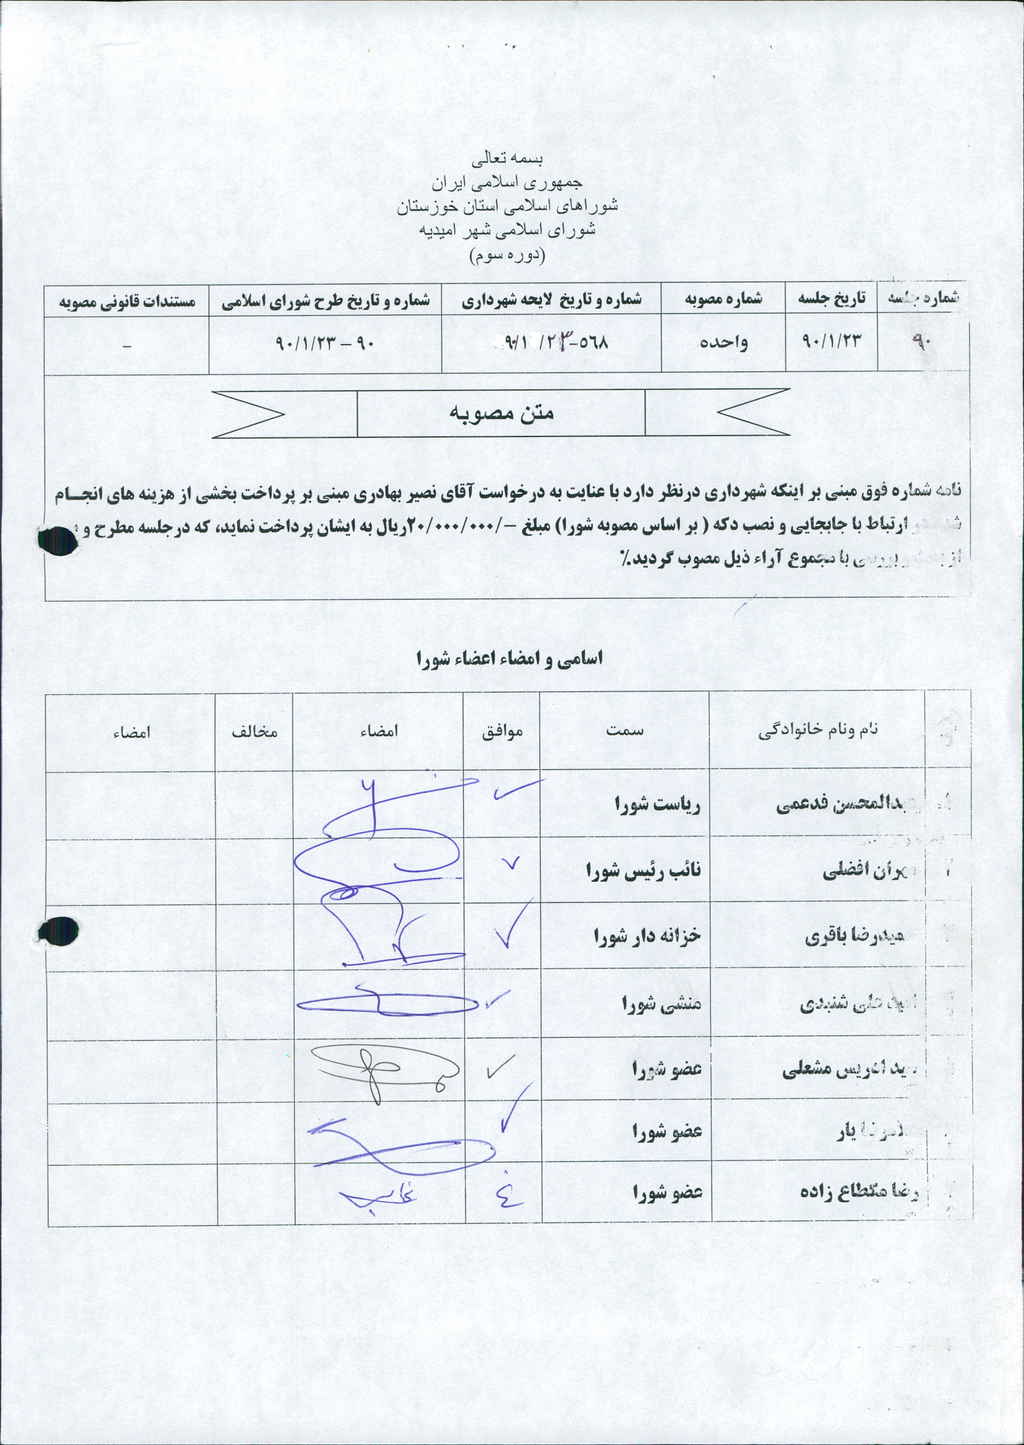 بسمه تعالی
جمهوری اسلامی ایران
شوراهای اسلامی استان خوزستان
شورای اسلامی شهر امیدیه
(دوره سوم)
شماره جلسه تاریخ جلسه شماره مصوبه شماره و تاریخ لایحه شهرداری شماره و تاریخ طرح شورای اسلامی مستندات قانونی مصوبه
۹۰ ۹۰/۱/۲۳ واحده ۵۶۸-۹۰/۱/۲۳ ۹۰ – ۹۰/۱/۲۳ –
متن مصوبه
نامه شماره فوق مبنی بر اینکه شهرداری درنظر دارد با عنایت به درخواست آقای نصیر بهادری مبنی بر پرداخت بخشی از هزینه های انجام
در ارتباط با جابجایی و نصب دکه ( بر اساس مصوبه شورا) مبلغ -/۲۰/۰۰۰/۰۰۰ریال به ایشان پرداخت نماید، که درجلسه مطرح و
از بررسی با مجموع آراء ذیل مصوب گردید.٪
اسامی و امضاء اعضاء شورا
نام ونام خانوادگی سمت موافق امضاء مخالف امضاء
عبدالمحسن فدعمی ریاست شورا
افضلی نائب رئیس شورا
حمیدرضا باقری خزانه دار شورا
علی شنبدی منشی شورا
سید ادریس مشعلی عضو شورا
یار عضو شورا
رضا مقطاع زاده عضو شورا غ غایب